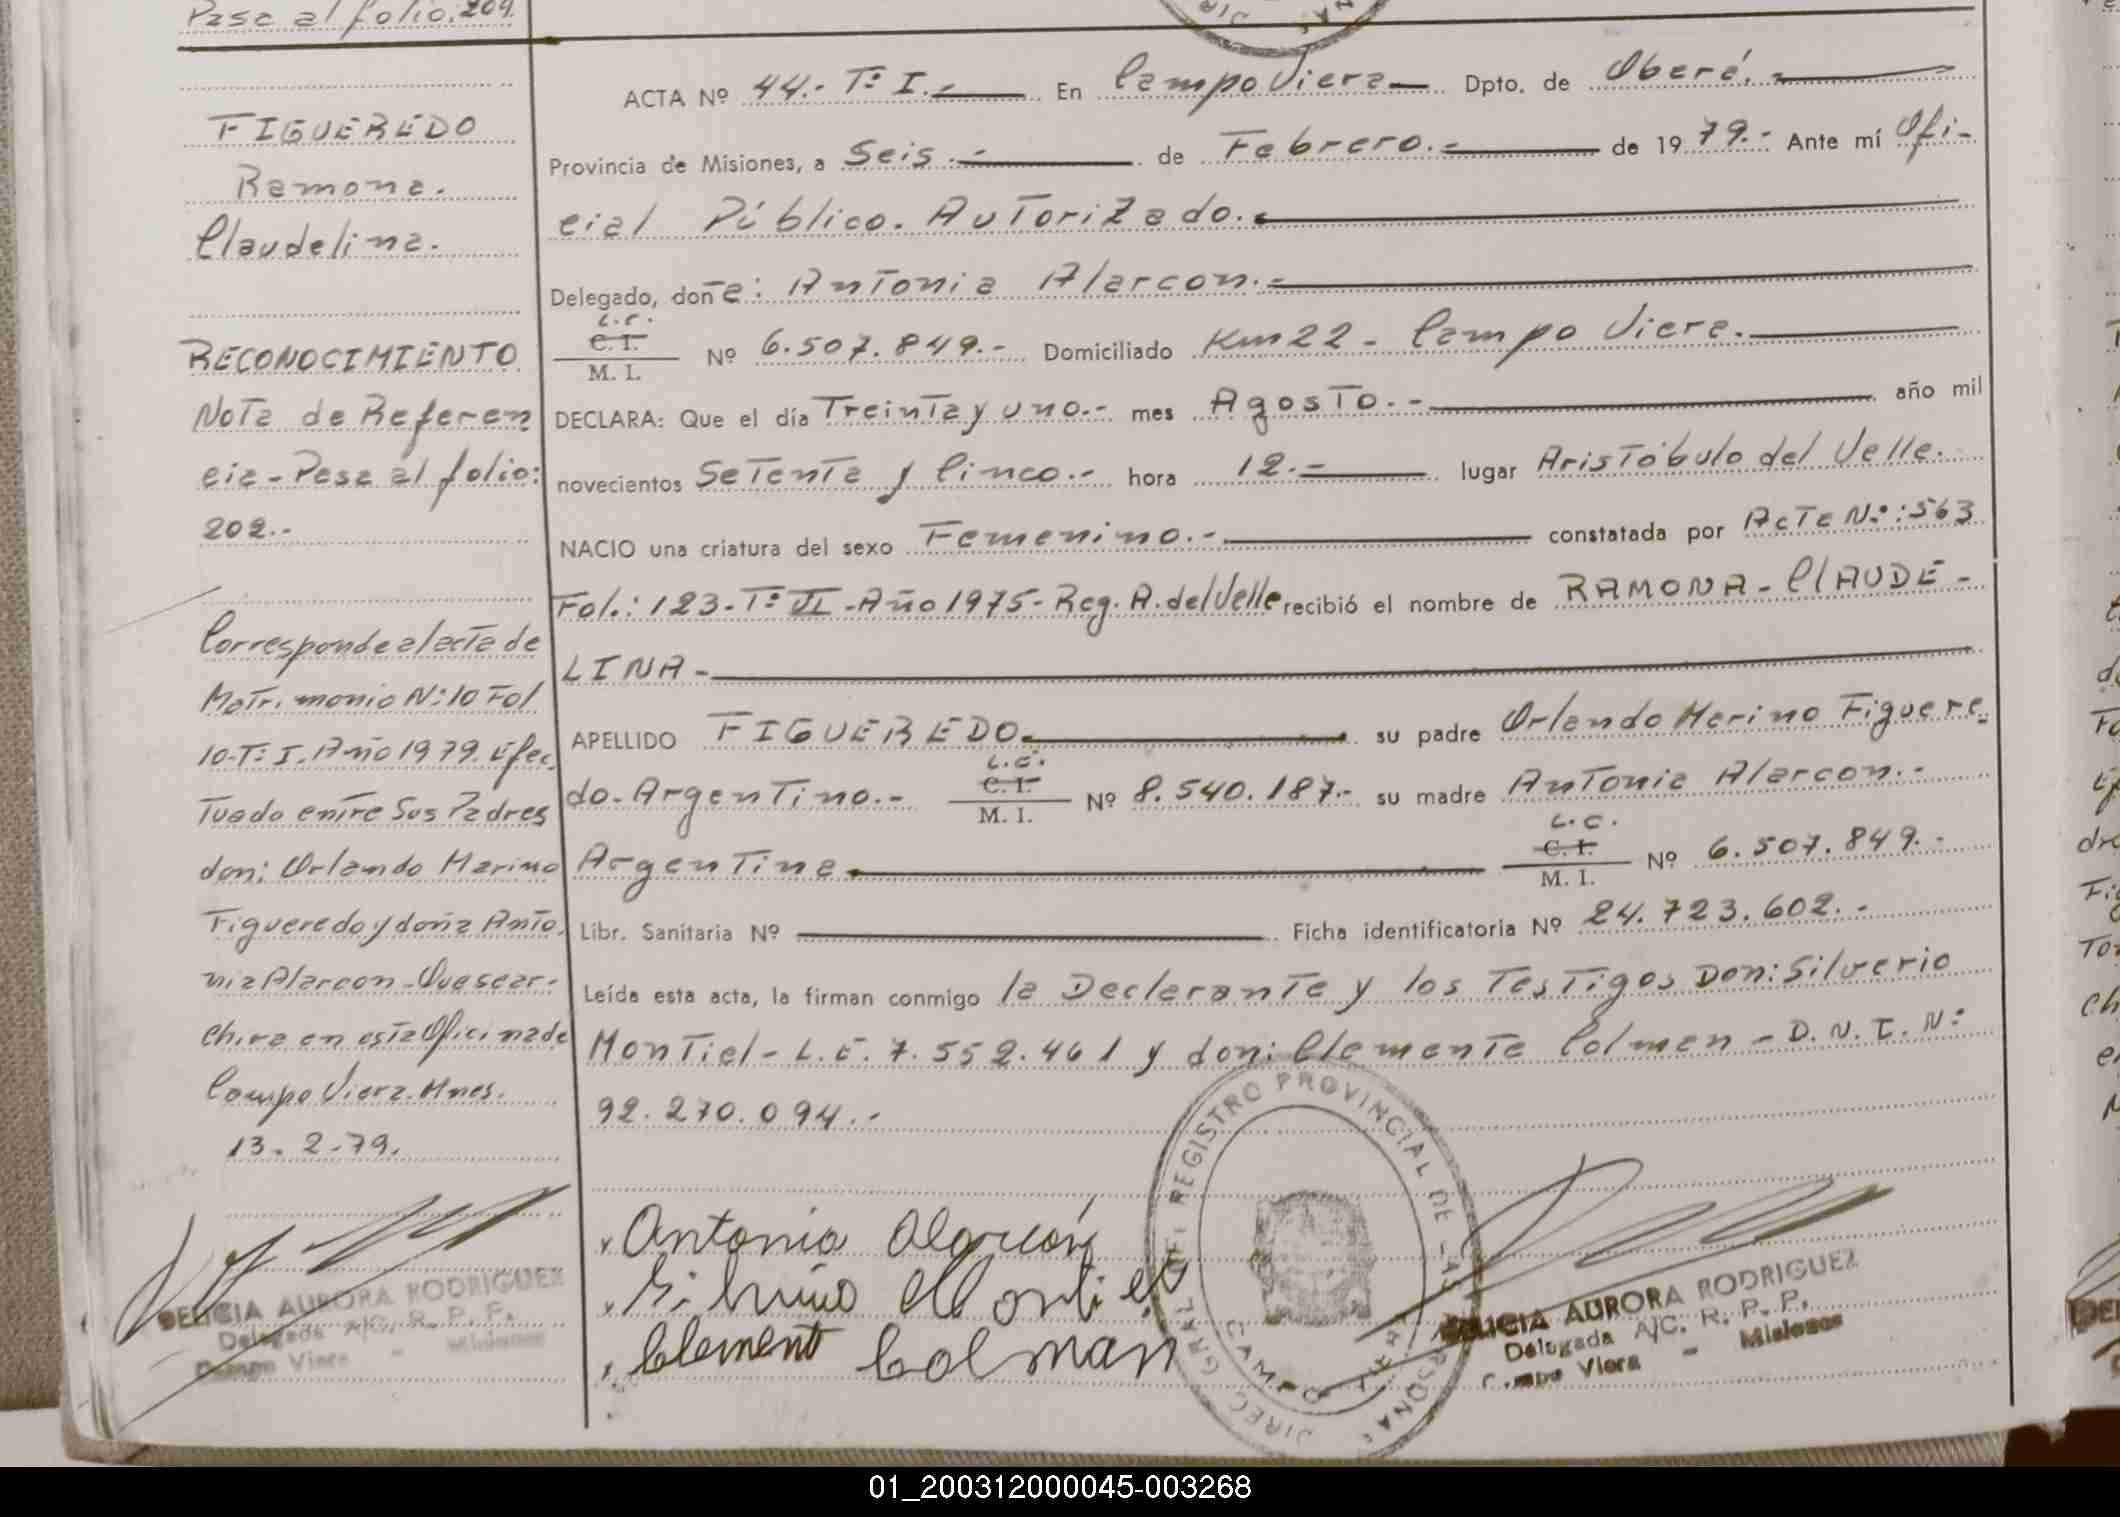 Pasa al folio. 209.
FIGUEREDO
Ramona.
Claudelina.
RECONOCIMIENTO
Nota de Referen
cia - Pasa al folio:
202.-
Corresponde al acta de
Matrimonio N: 10 Fol
10-Tº I. Año 1979. Efec
tuado entre Sus Padres
don: Orlando Marino
Figueredo y doña Anto
nia Alarcon - Que se ar-
chiva en esta Oficina de
Campo Viera. Mnes.
13. 2-79.
DELICIA AURORA RODRIGUEZ
Delegada A/C. R. P. P.
Campo Viera - Misiones
ACTA Nº 44.- Tº I.- En Campo Viera Dpto. de Oberá.-
Provincia de Misiones, a Seis.- de Febrero.- de 1979.- Ante mí Ofi-
cial Público. Autorizado.
Delegado, doña: Antonia Alarcon.-
L.C.
C. I.
M. I.
Nº 6.507.849.- Domiciliado Km 22 - Campo Viera.
DECLARA: Que el día Treinta y uno.- mes Agosto.- año mil
novecientos Setenta y Cinco.- hora 12.- lugar Aristóbulo del Valle.
NACIO una criatura del sexo Femenino.- constatada por Acta Nº: 563
Fol.: 123-Tº II-Año 1975-Reg. A. del Valle recibió el nombre de RAMONA - CLAUDE -
LINA -
APELLIDO FIGUEREDO. su padre Orlando Marino Figuere
do-Argentino.-
L.C.
C. I.
M. I.
Nº 8.540.187.- su madre Antonia Alarcon.-
Argentina
L.C.
C. I.
M. I.
Nº 6.507.849.-
Libr. Sanitaria Nº Ficha identificatoria Nº 24.723.602.-
Leída esta acta, la firman conmigo la Declarante y los Testigos Don: Silverio
Montiel - L.E. 7.552.461 y don: Clemente Colman - D.N.I. N:
92.270.094.-
Antonia Alarcón
Silverio Montiel
Clement Colman
REGISTRO PROVINCIAL DE
CAMPO VIERA
DELICIA AURORA RODRIGUEZ
Delegada A/C. R. P. P.
Campo Viera - Misiones
01_200312000045-003268